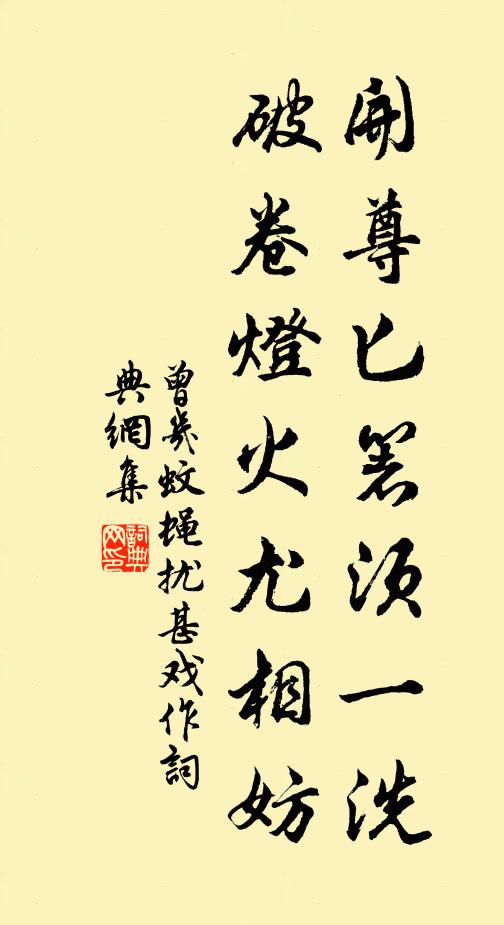 開尊匕箸須一洗
破卷燈火尤相妨
曾幾蚊蝇扰甚戏作詞
典網集
詞典
网印